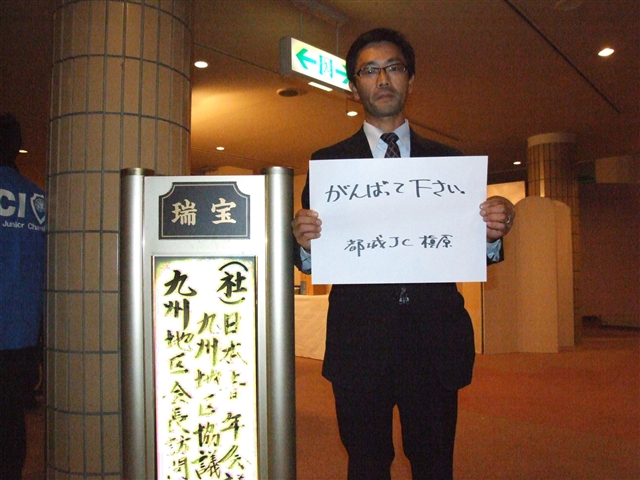 がんばって下さい。
都城JC 横原
瑞宝
(社)日本青年会議
九州地区協議
九州地区会長訪問
CI
Junior Cham